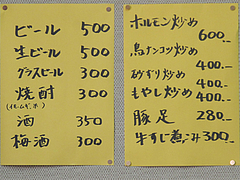 ビール 500
生ビール 500
グラスビール 300
焼酎 300
(イモ、ムギ、ホ)
酒 350
梅酒 300
ホルモン炒め
600.-
鳥ナンコツ炒め
400.-
砂ずり炒め
400.-
もやし炒め 400.-
豚足 280.-
牛すじ煮こみ 300.-